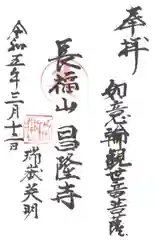 奉拝
如意輪観世音菩薩
長福山 昌隆寺
令和五年三月十二日
瑞嶽英明